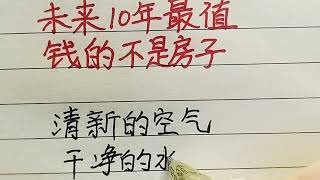 未来10年最值
钱的不是房子
清新的空气
干净的水